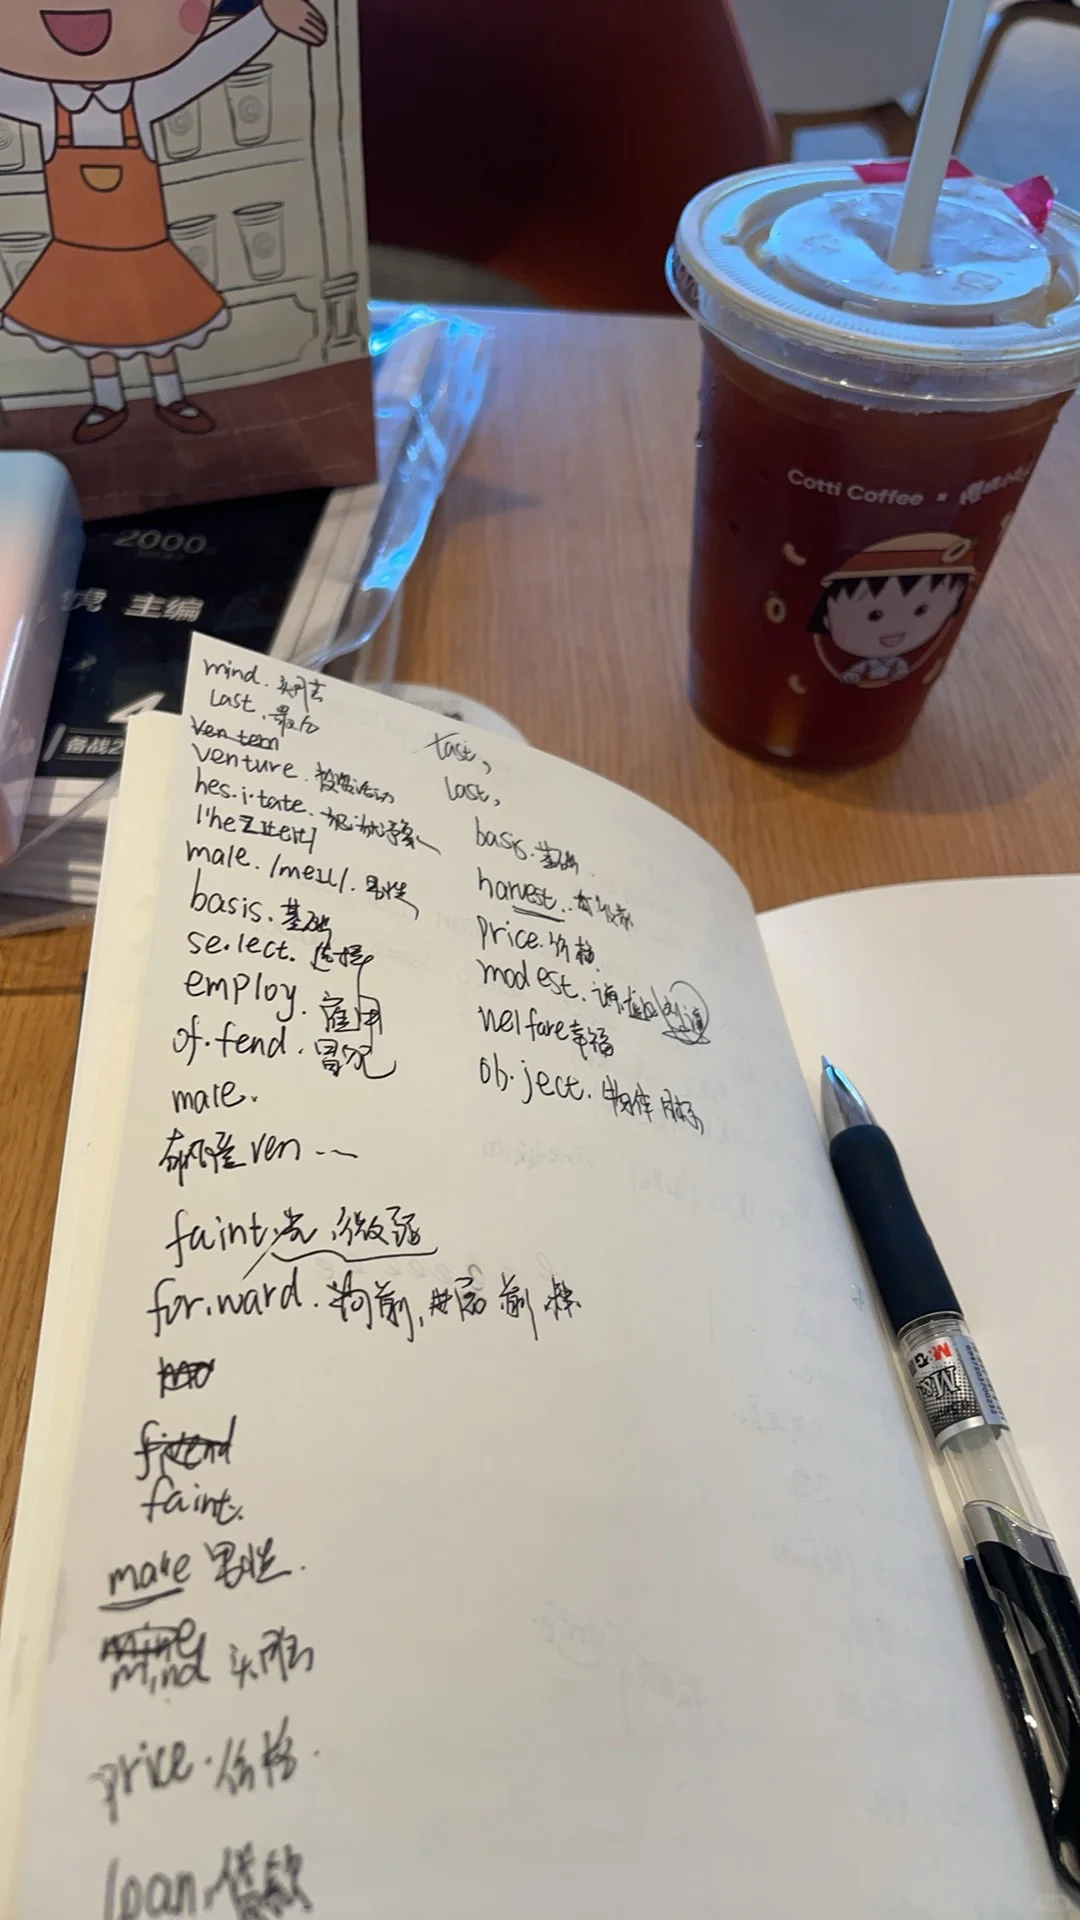 2000
主编
备战2
Cotti Coffee
mind. 头脑
last. 最后
ven tem
venture. 投资活动
hes.i.tate. 犹豫
male. /meɪl/. 男性
basis. 基础
se.lect. 选择
employ. 雇用
of.fend. 冒犯
male.
ven
faint. 微弱
for.ward. 向前, 前
faint.
male 男性.
mind 头脑
price. 价格.
loan. 借款
last,
basis. 基础.
harvest.
price. 价格
modest. 谦虚
welfare 幸福
ob.ject. 物体 目标
M&G